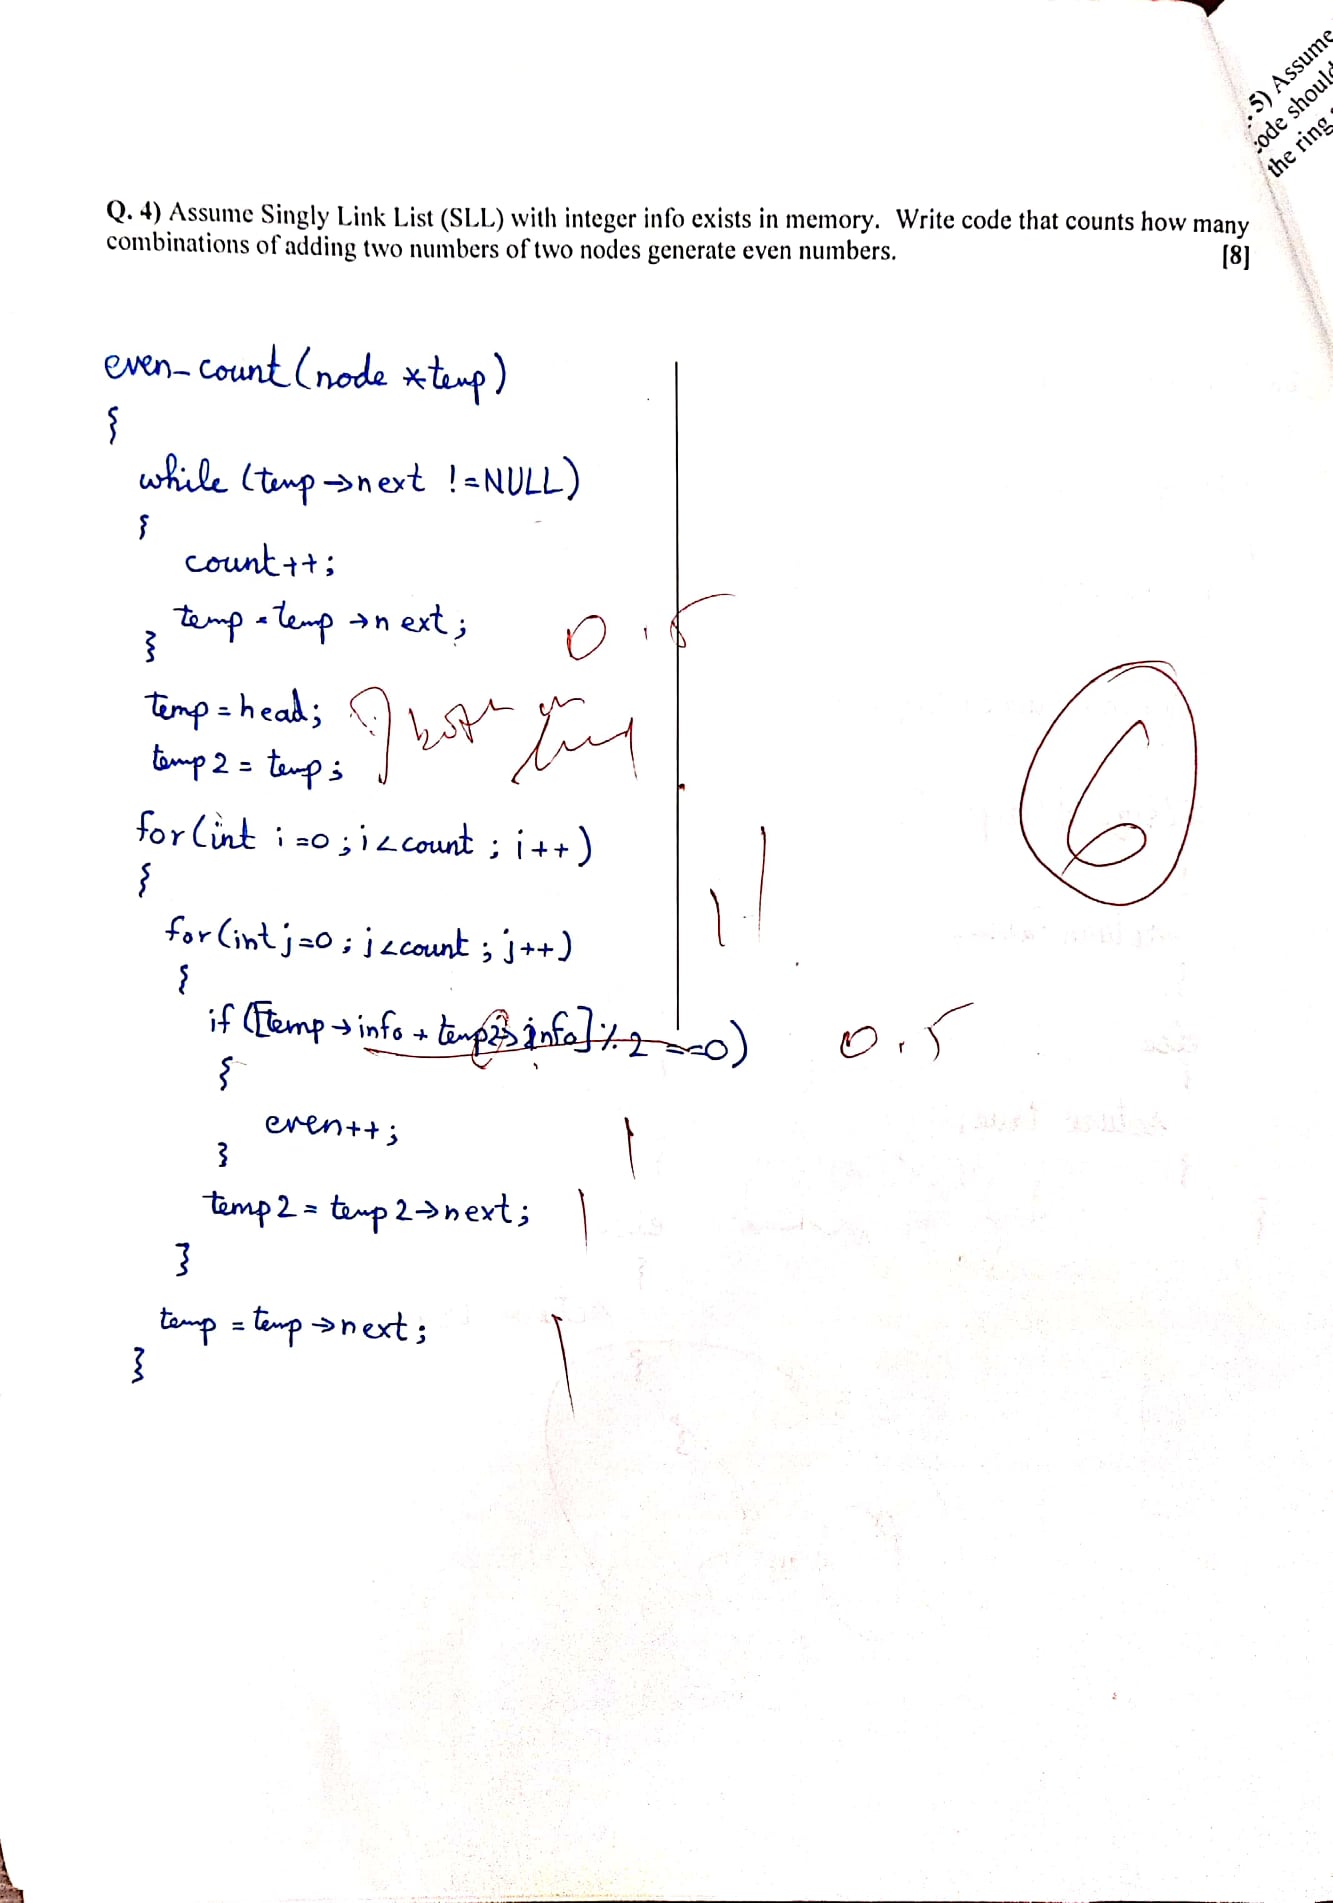 .5) Assume
code should
the ring
Q. 4) Assume Singly Link List (SLL) with integer info exists in memory. Write code that counts how many
combinations of adding two numbers of two nodes generate even numbers. [8]
even_count(node *temp)
{
while (temp→next !=NULL)
{
count++;
temp = temp →next;
}
0.5
temp = head;
temp2 = temp;
both
6
for(int i=0; i<count; i++)
{
for(int j=0; j<count; j++)
{
if ([temp→info + temp2→info]%2 ==0)
0.5
{
even++;
}
temp2 = temp2→next;
}
temp = temp→next;
}